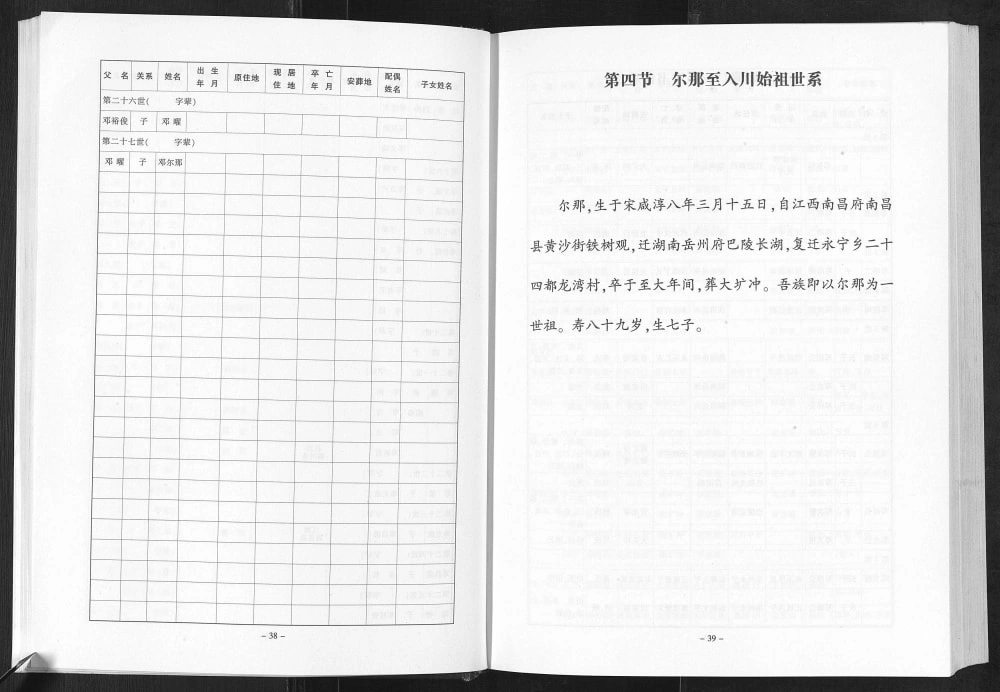 父 名 关系 姓名 出 生 年 月 原住地 现 居 住 地 卒 亡 年 月 安葬地 配偶 姓名 子女姓名
第二十六世( 字辈)
邓裕俊 子 邓 曜
第二十七世( 字辈)
邓 曜 子 邓尔那
– 38 –
第四节 尔那至入川始祖世系
尔那,生于宋咸淳八年三月十五日,自江西南昌府南昌
县黄沙街铁树观,迁湖南岳州府巴陵长湖,复迁永宁乡二十
四都龙湾村,卒于至大年间,葬大圹冲。吾族即以尔那为一
世祖。寿八十九岁,生七子。
– 39 –